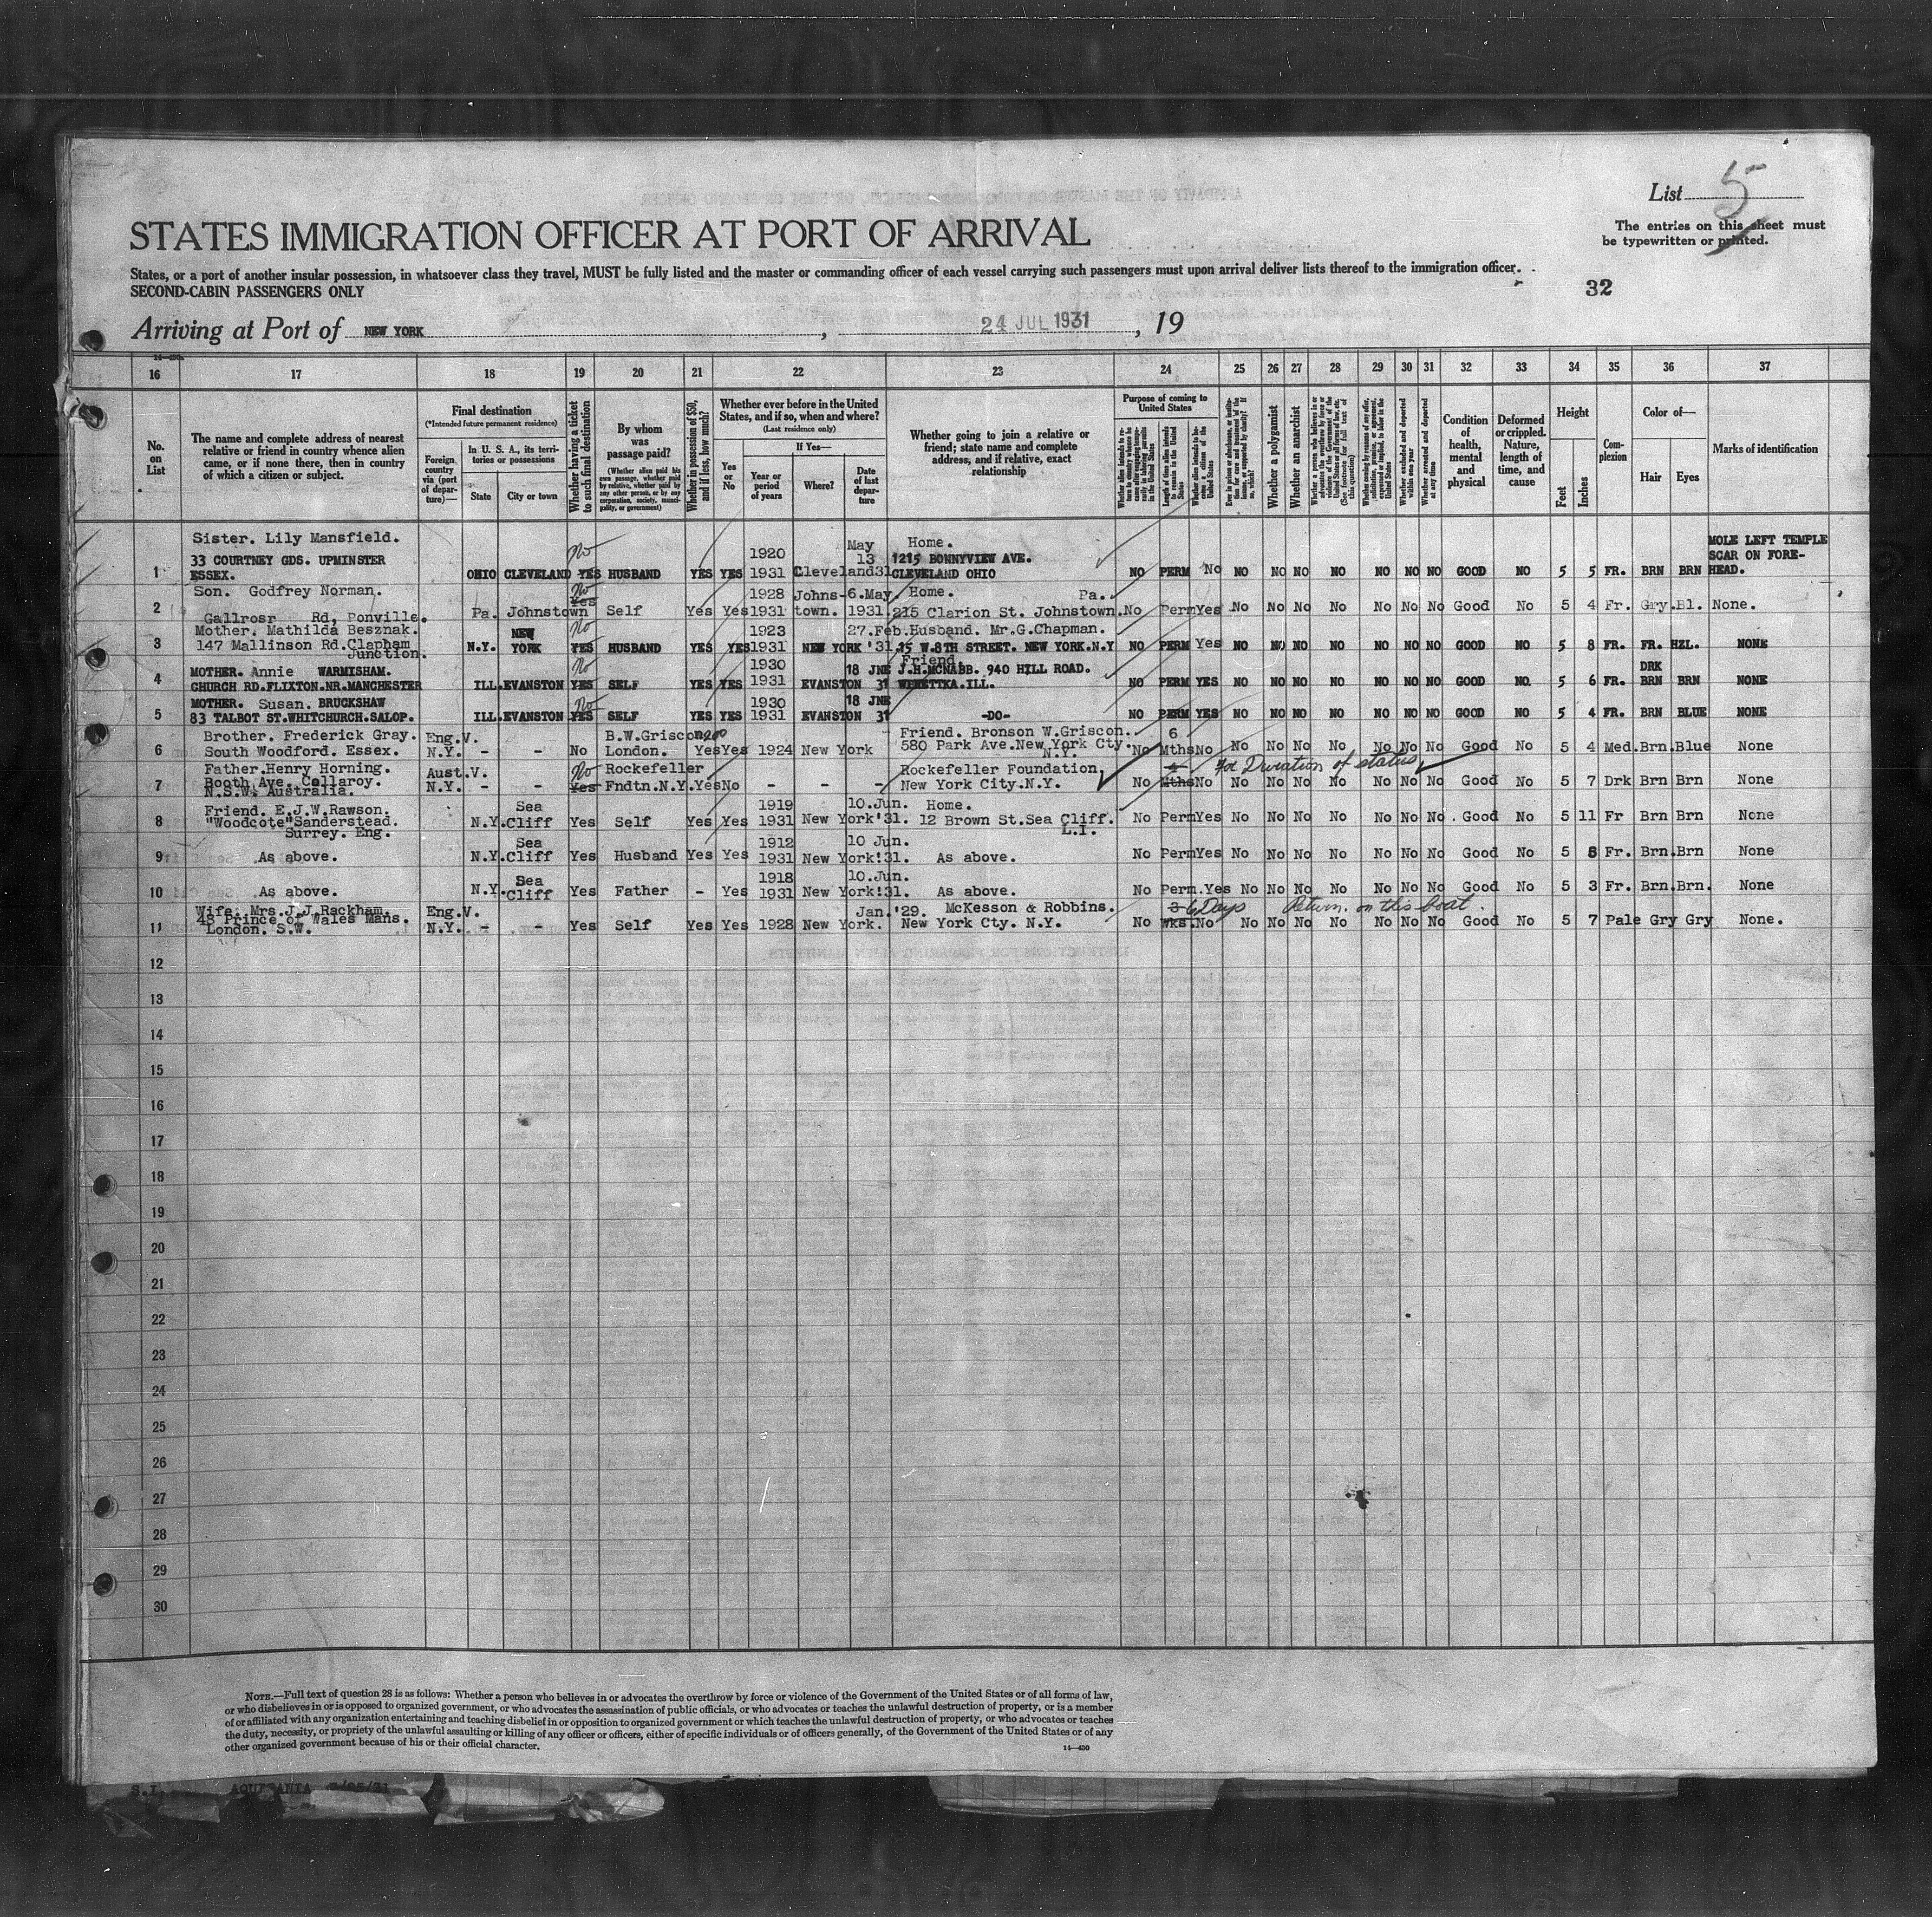 List 5
The entries on this sheet must
be typewritten or printed.
STATES IMMIGRATION OFFICER AT PORT OF ARRIVAL
States, or a port of another insular possession, in whatsoever class they travel, MUST be fully listed and the master or commanding officer of each vessel carrying such passengers must upon arrival deliver lists thereof to the immigration officer.
SECOND-CABIN PASSENGERS ONLY
32
Arriving at Port of NEW YORK, 24 JUL 1931, 19
14—430
16 17 18 19 20 21 22 23 24 25 26 27 28 29 30 31 32 33 34 35 36 37
No. on List
The name and complete address of nearest
relative or friend in country whence alien
came, or if none there, then in country
of which a citizen or subject.
Final destination
(*Intended future permanent residence)
Foreign country via (port of departure)—
In U. S. A., its territories or possessions
State
City or town
Whether having a ticket to such final destination
By whom was passage paid?
(Whether alien paid his own passage, whether paid by relative, whether paid by any other person, or by any corporation, society, municipality, or government)
Whether in possession of $50, and if less, how much?
Whether ever before in the United
States, and if so, when and where?
(Last residence only)
Yes or No
If Yes—
Year or period of years
Where?
Date of last departure
Whether going to join a relative or
friend; state name and complete
address, and if relative, exact
relationship
Purpose of coming to United States
Length of time alien intends to remain in the United States
Whether a polygamist
Whether an anarchist
Condition of health, mental and physical
Deformed or crippled. Nature, length of time, and cause
Height
Feet
Inches
Complexion
Color of—
Hair
Eyes
Marks of identification
Sister. Lily Mansfield. 1920 May Home. MOLE LEFT TEMPLE
33 COURTNEY GDS. UPMINSTER no 13 1215 BONNYVIEW AVE. SCAR ON FORE-
1 ESSEX. OHIO CLEVELAND YES HUSBAND YES YES 1931 Cleveland 31 CLEVELAND OHIO NO PERM No NO NO NO NO NO NO NO GOOD NO 5 5 FR. BRN BRN HEAD.
Son. Godfrey Norman. no 1928 Johns- 6.May. Home. Pa.
2 Gallrosr Rd, Ponville. Pa. Johnstown Yes Self Yes Yes 1931 town. 1931. 215 Clarion St. Johnstown. No Perm Yes No No No No No No No Good No 5 4 Fr. Gry. Bl. None.
Mother. Mathilda Besznak. NEW no 1923 27.Feb. Husband. Mr.G.Chapman.
3 147 Mallinson Rd.Clapham Junction. N.Y. YORK YES HUSBAND YES YES 1931 NEW YORK '31 15 W.8TH STREET. NEW YORK.N.Y NO PERM Yes NO NO NO NO NO NO NO GOOD NO 5 8 FR. FR. HZL. NONE
MOTHER. Annie WARMISHAM. no 1930 18 JNE Friend. J.H.MCNABB. 940 HILL ROAD. DRK
4 CHURCH RD.FLIXTON.NR.MANCHESTER ILL. EVANSTON YES SELF YES YES 1931 EVANSTON 31 WINETTKA.ILL. NO PERM YES NO NO NO NO NO NO NO GOOD NO. 5 6 FR. BRN BRN NONE
MOTHER. Susan. BRUCKSHAW no 1930 18 JNE
5 83 TALBOT ST.WHITCHURCH.SALOP. ILL. EVANSTON YES SELF YES YES 1931 EVANSTON 31 -DO- NO PERM YES NO NO NO NO NO NO NO GOOD NO 5 4 FR. BRN BLUE NONE
Brother. Frederick Gray. Eng.V. B.W.Griscon. 200 Friend. Bronson W.Griscon. 6
6 South Woodford. Essex. N.Y. - - No London. Yes Yes 1924 New York 580 Park Ave.New York Cty. N.Y. No Mths No No No No No No No No Good No 5 4 Med. Brn. Blue None
Father.Henry Horning. Aust.V. no Rockefeller Rockefeller Foundation for Duration of status
7 Booth Ave. Collaroy. N.S.W. Australia. N.Y. - - Yes Fndtn.N.Y. Yes No - - - New York City.N.Y. No Mths No No No No No No No No Good No 5 7 Drk Brn Brn None
Friend. E.J.W.Rawson. Sea 1919 10.Jun. Home.
8 "Woodcote"Sanderstead. Surrey. Eng. N.Y. Cliff Yes Self Yes Yes 1931 New York '31. 12 Brown St.Sea Cliff. L.I. No Perm Yes No No No No No No No Good No 5 11 Fr Brn Brn None
Sea 1912 10 Jun.
9 As above. N.Y. Cliff Yes Husband Yes Yes 1931 New York '31. As above. No Perm Yes No No No No No No No Good No 5 8 Fr. Brn. Brn None
Sea 1918 10.Jun.
10 As above. N.Y. Cliff Yes Father - Yes 1931 New York '31. As above. No Perm. Yes No No No No No No No Good No 5 3 Fr. Brn. Brn. None
Wife. Mrs.J.J.Rackham. Eng.V. Jan.'29. McKesson & Robbins. 3 6 Days Return. on this boat.
11 48 Prince of Wales Mans. London. S.W. N.Y. - - Yes Self Yes Yes 1928 New York. New York Cty. N.Y. No Wks. No No No No No No No No Good No 5 7 Pale Gry Gry None.
12
13
14
15
16
17
18
19
20
21
22
23
24
25
26
27
28
29
30
NOTE.—Full text of question 28 is as follows: Whether a person who believes in or advocates the overthrow by force or violence of the Government of the United States or of all forms of law,
or who disbelieves in or is opposed to organized government, or who advocates the assassination of public officials, or who advocates or teaches the unlawful destruction of property, or is a member
of or affiliated with any organization entertaining and teaching disbelief in or opposition to organized government or which teaches the unlawful destruction of property, or who advocates or teaches
the duty, necessity, or propriety of the unlawful assaulting or killing of any officer or officers, either of specific individuals or of officers generally, of the Government of the United States or of any
other organized government because of his or their official character.
14—430
S.I. AQUITANIA